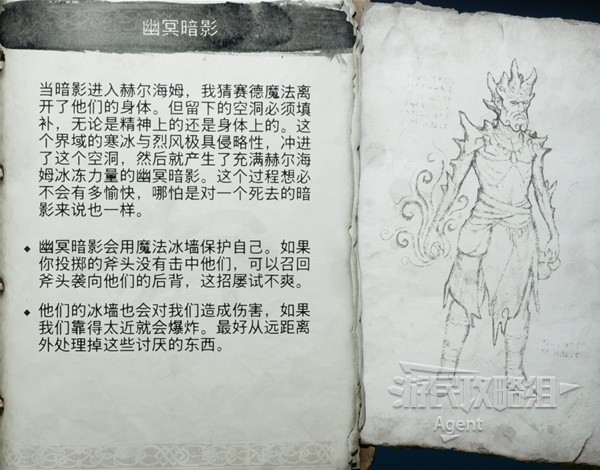 幽冥暗影
当暗影进入赫尔海姆，我猜赛德魔法离
开了他们的身体。但留下的空洞必须填
补，无论是精神上的还是身体上的。这
个界域的寒冰与烈风极具侵略性，冲进
了这个空洞，然后就产生了充满赫尔海
姆冰冻力量的幽冥暗影。这个过程想必
不会有多愉快，哪怕是对一个死去的暗
影来说也一样。
幽冥暗影会用魔法冰墙保护自己。如果
你投掷的斧头没有击中他们，可以召回
斧头袭向他们的后背，这招屡试不爽。
他们的冰墙也会对我们造成伤害，如果
我们靠得太近就会爆炸。最好从远距离
外处理掉这些讨厌的东西。
游民攻略组
Agent